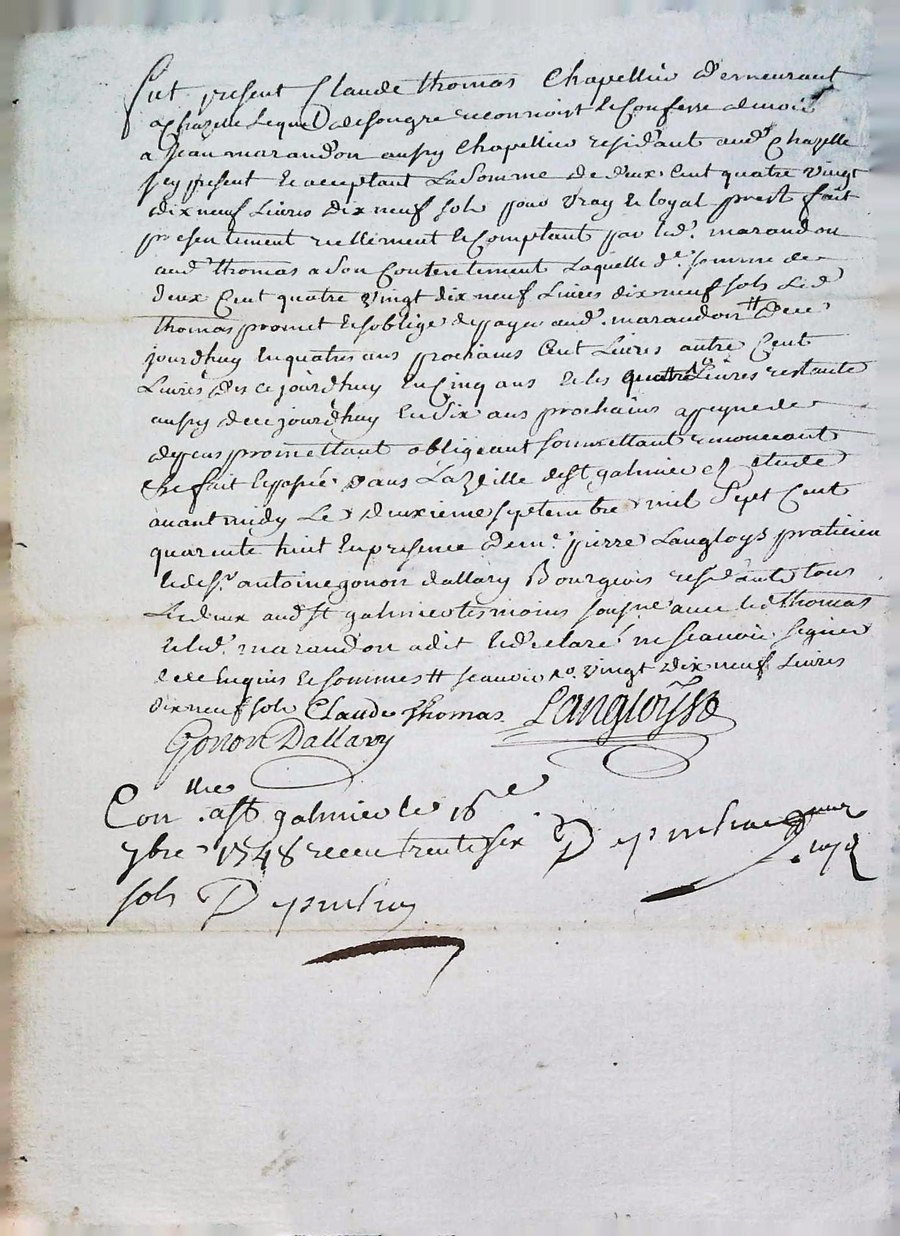 Fut present Claude thomas Chapellier demeurant
a Chazelle Lequel de son gre reconnoist et Confesse devoir
a Jean marandon aussy Chapellier residant aud. Chazelle
icy present et acceptant La Somme de deux Cent quatre vingt
dix neuf Livres dix neuf sols pour vray et loyal prest fait
presentement reellement et Comptant par led. marandon
aud. thomas a Son Contentement Laquelle de. somme de
deux Cent quatre vingt dix neuf Livres dix neuf sols Led.
thomas promet et soblige de payer aud. marandon dece
jourdhuy en quatre ans prochains Cent Livres autre Cent
Livres des ce jourdhuy en Cinq ans et les quatre Livres restante
aussy dece jourdhuy en Six ans prochains a peyne de
depens promettant obligeant soumettant renoncant
fait et passé dans La Ville de st galmier etude
avant midy Le deuxieme septembre mil Sept Cent
quarente huit en presence de me. pierre Langloys praticien
et de sr. antoine gonon dallary Bourgeois residants tous
Les deux aud. st galmier temoins sousne. avec led. thomas
et led. marandon a dit et declaré ne scavoir signer
de ce enquis et sommes # scavoir vingt dix neuf Livres
dix neuf sols Claude Thomas. Langloysse
Gonon Dallary
Conlle. a st galmier le 16e
7bre 1748 receu trente six
sols